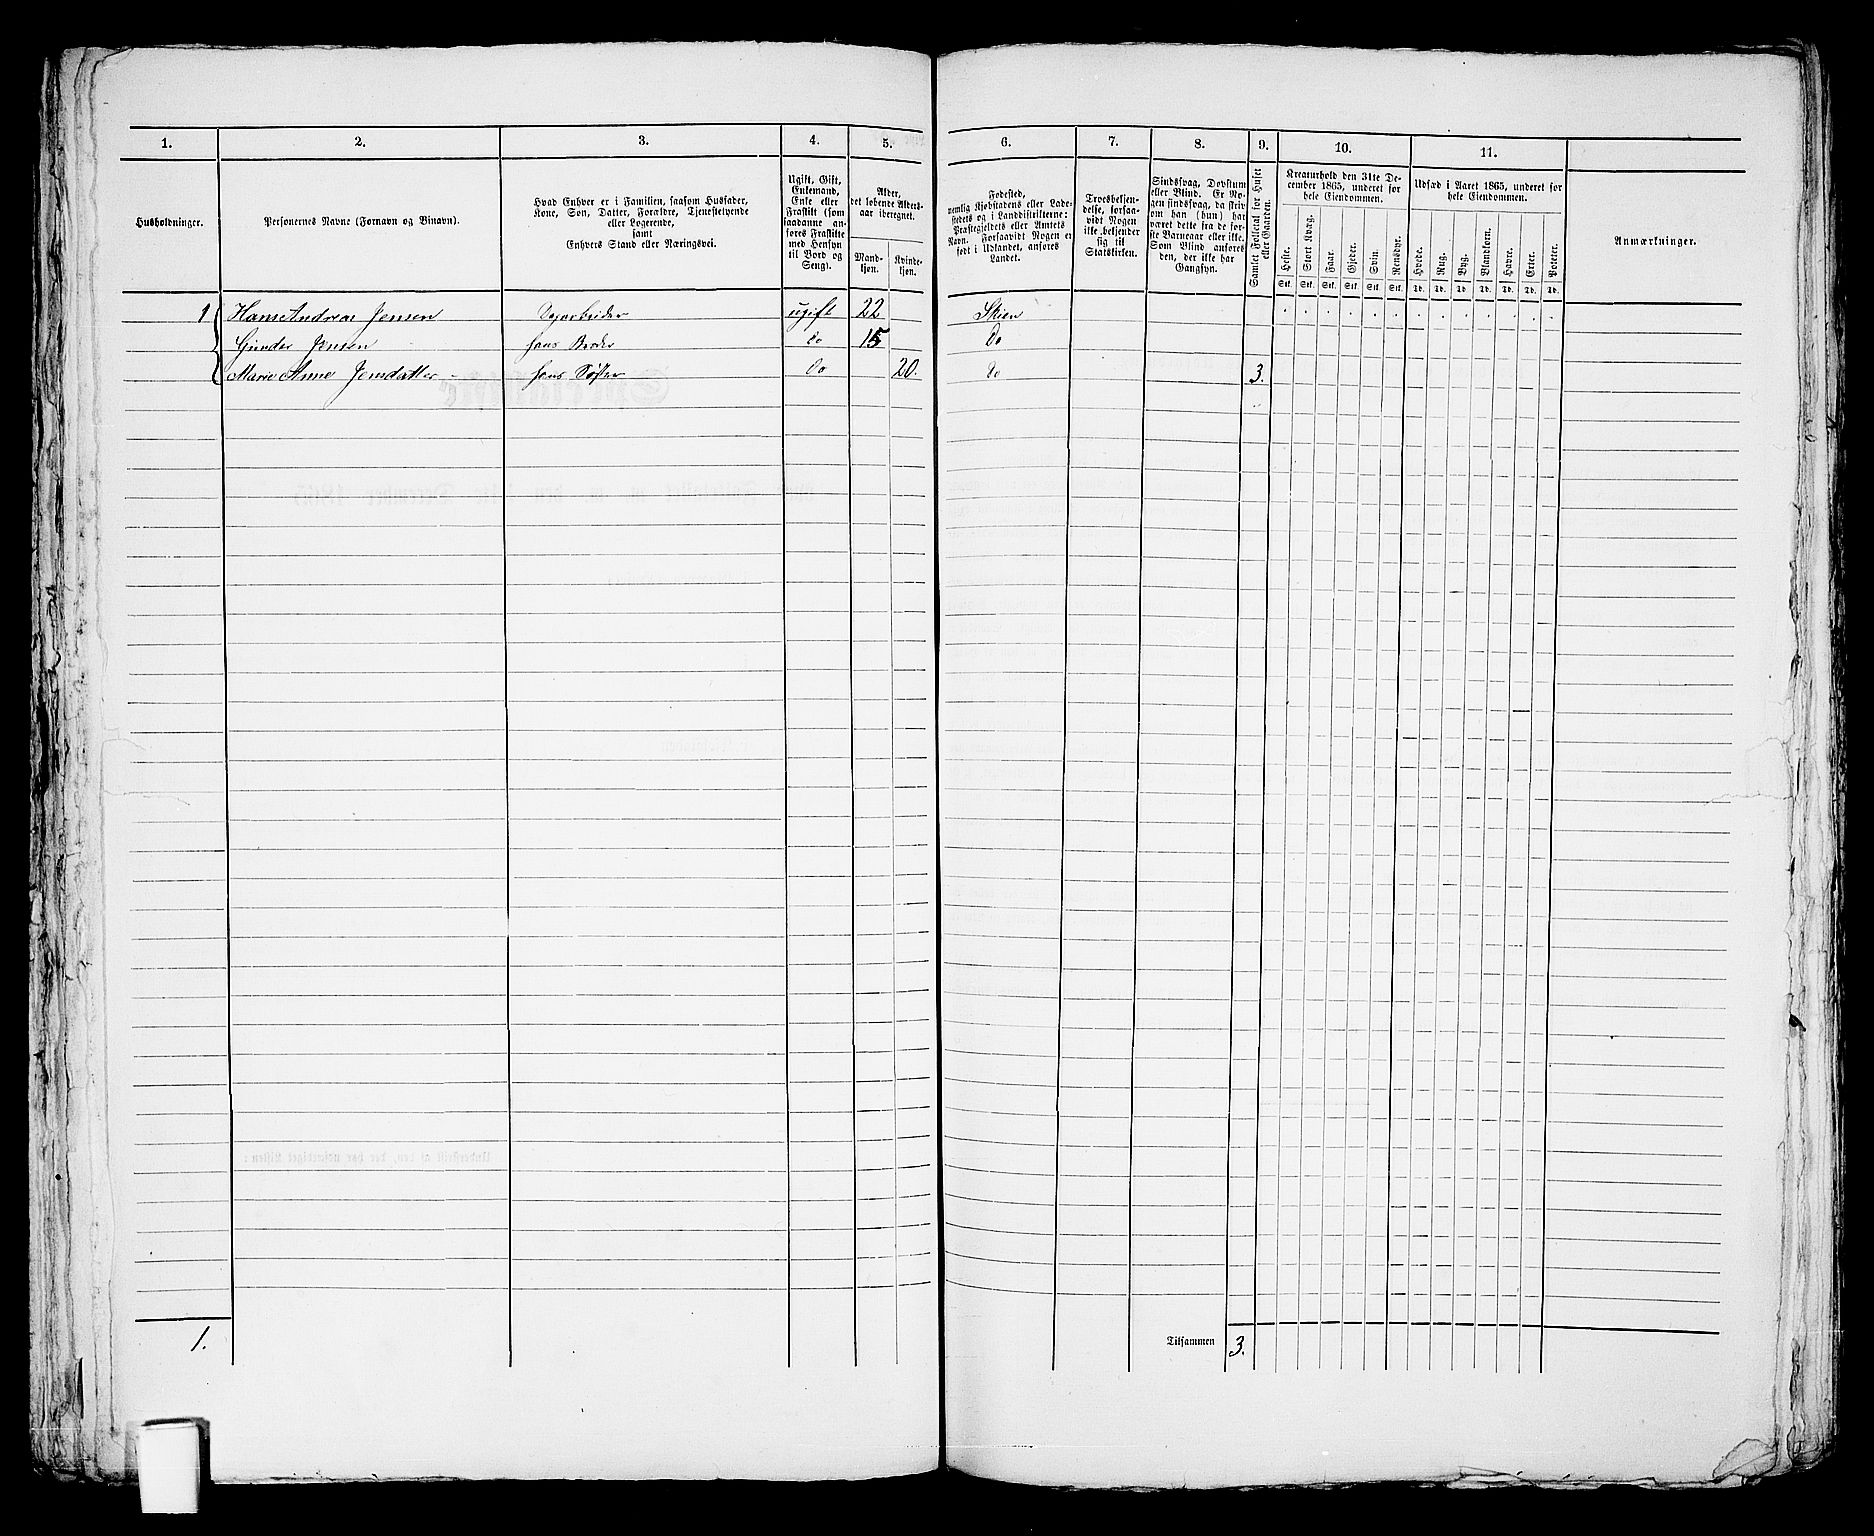 1. 2. 3. 4. 5. 6. 7. 8. 9. 10. 11.
Husholdninger.
Personernes Navne (Fornavn og Binavn).
Hvad Enhver er i Familien, saasom Husfader,
Kone, Søn, Datter, Forældre, Tjenestetyende
eller Logerende,
samt
Enhvers Stand eller Næringsvei.
Ugift, Gift,
Enkemand,
Enke eller
Fraskilt (som
saadanne an-
føres Fraskilte
med Hensyn
til Bord og
Seng).
Alder,
det løbende Alders-
aar iberegnet.
Mand-
kjøn.
Kvinde-
kjøn.
Fødested,
nemlig Kjøbstadens eller Lade-
stedets og i Landdistrikterne:
Præstegjeldets eller Annexets
Navn. Forsaavidt Nogen er
født i Udlandet, anføres
Landet.
Troesbekjen-
delse, forsaa-
vidt Nogen
ikke bekjender
sig til
Statskirken.
Sindssvag, Døvstum
eller Blind. Er No-
gen sindssvag, da skriv
om han (hun) har
været dette fra de før-
ste Barneaar eller ikke.
Som Blind anføres
den, der ikke har
Gangsyn.
Samlet Folketal for Huset
eller Gaarden.
Kreaturhold den 31te De-
cember 1865, underet for
hele Eiendommen.
Heste. Stort Kvæg. Faar. Gjeder. Svin. Rensdyr.
Stk. Stk. Stk. Stk. Stk. Stk.
Udsæd i Aaret 1865, underet for
hele Eiendommen.
Hvede. Rug. Byg. Blandkorn. Havre. Erter. Poteter.
Td. Td. Td. Td. Td. Td. Td.
Anmærkninger.
1 Hans Andreas Jensen ugift 22 Skien
Gunder Jensen hans Broder do 15 Do
Marie Anne Jensdatter hans Søster Do 20. do 3.
1. Tilsammen 3.